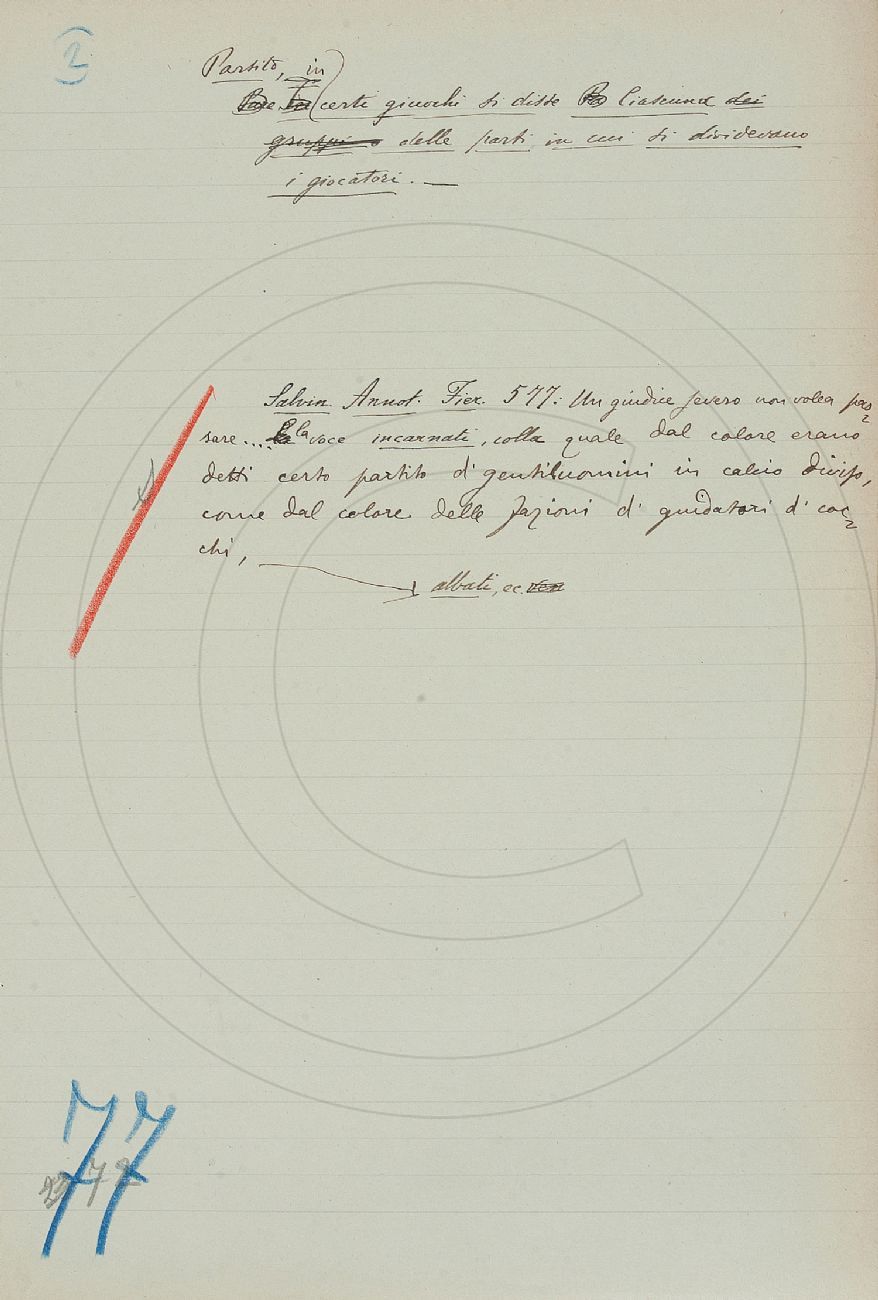 2
Partito, in
certi giuochi si disse Ciascuna dei
gruppi o delle parti in cui si dividevano
i giocatori. —
Salvin. Annot. Fier. 577: Un giudice severo non volea pas=
sare... la voce incarnati, colla quale dal colore erano
detti certo partito d' gentiluomini in calcio diviso,
come dal colore delle fazioni d' guidatori d' coc=
chi,
albati, ec.
77